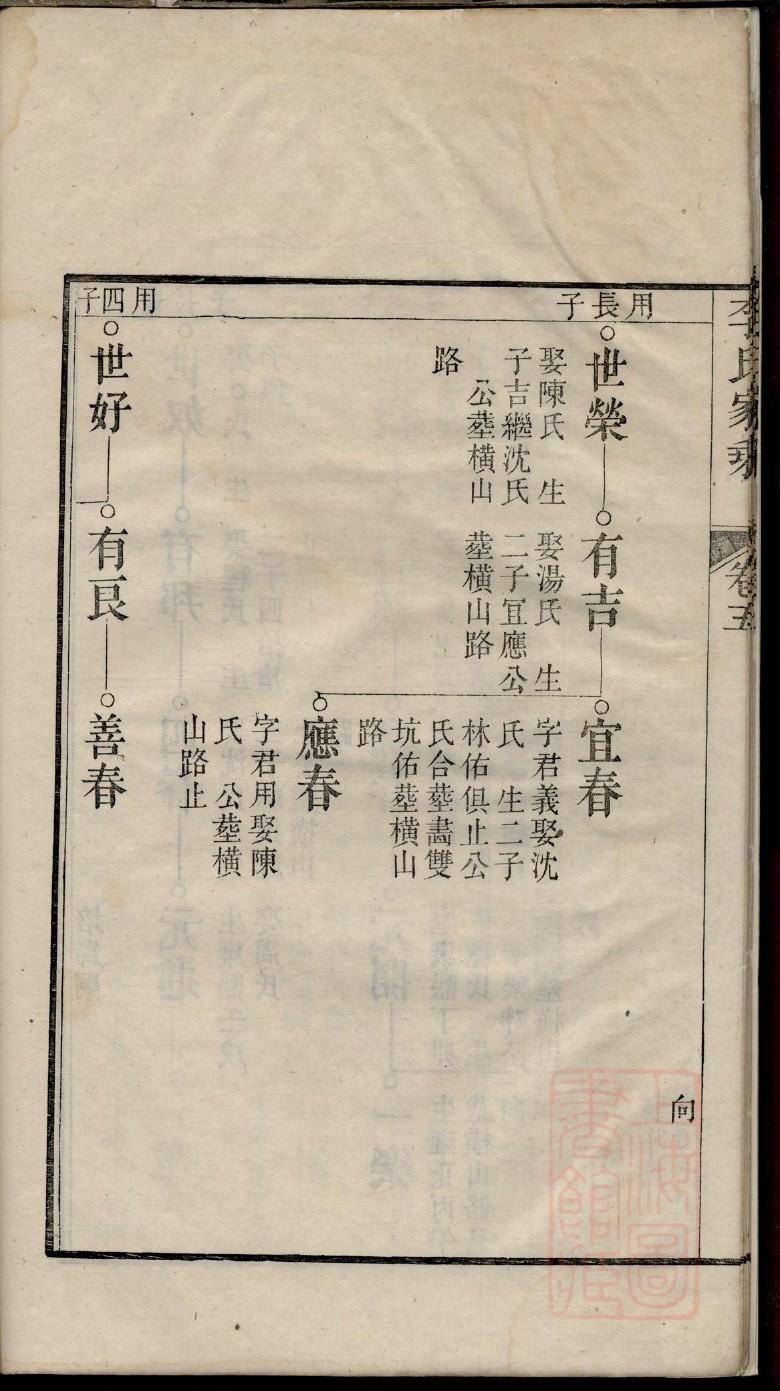 李氏家乘
卷五
向
用長子
世榮
娶陳氏　生
子吉繼沈氏
公塟橫山
路
有吉
娶湯氏　生
二子宜應公
塟橫山路
宜春
字君義娶沈
氏　生二子
林佑俱止公
氏合塟畵雙
坑佑塟橫山
路
應春
字君用娶陳
氏　公塟橫
山路止
用四子
世好
有良
善春
上海圖書館藏